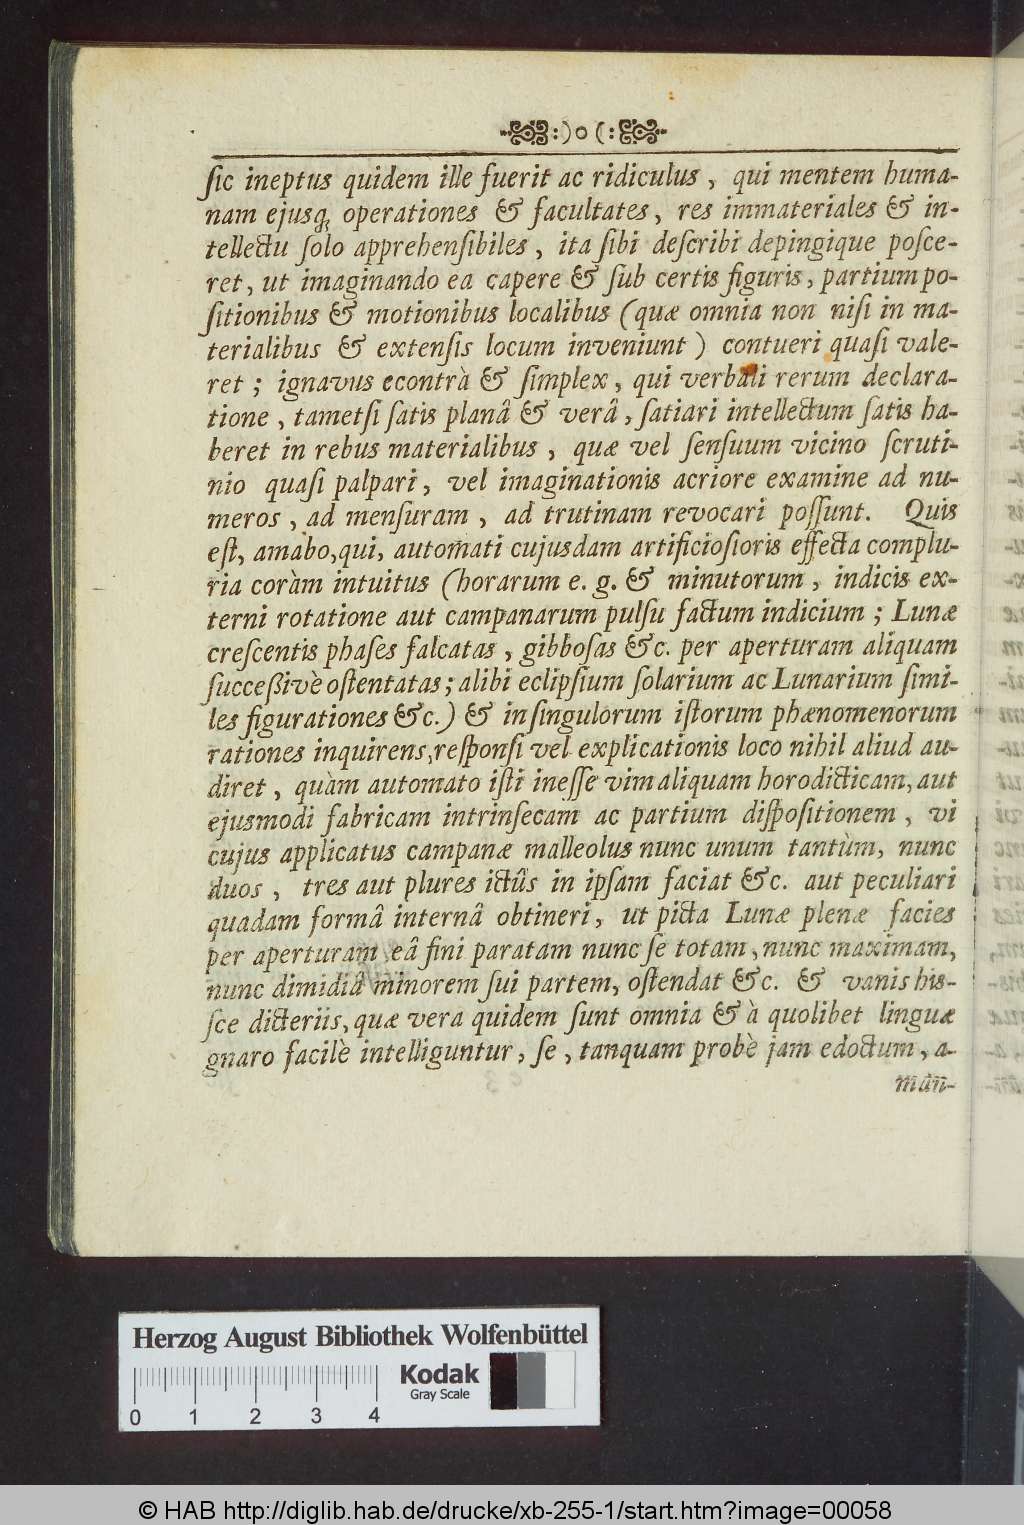 :) o (:
ſic ineptus quidem ille fuerit ac ridiculus, qui mentem huma-
nam ejusq; operationes & facultates, res immateriales & in-
tellectu ſolo apprehenſibiles, ita ſibi deſcribi depingique poſce-
ret, ut imaginando ea capere & ſub certis figuris, partium po-
ſitionibus & motionibus localibus (quæ omnia non niſi in ma-
terialibus & extenſis locum inveniunt) contueri quaſi vale-
ret; ignavus econtrà & ſimplex, qui verbali rerum declara-
tione, tametſi ſatis planâ & verâ, ſatiari intellectum ſatis ha-
beret in rebus materialibus, quæ vel ſenſuum vicino ſcruti-
nio quaſi palpari, vel imaginationis acriore examine ad nu-
meros, ad menſuram, ad trutinam revocari poſſunt. Quis
eſt, amabo, qui, automati cujusdam artificioſioris effecta complu-
ria coràm intuitus (horarum e. g. & minutorum, indicis ex-
terni rotatione aut campanarum pulſu factum indicium; Lunæ
creſcentis phaſes falcatas, gibboſas &c. per aperturam aliquam
ſucceßivè oſtentatas; alibi eclipſium ſolarium ac Lunarium ſimi-
les figurationes &c.) & in ſingulorum iſtorum phænomenorum
rationes inquirens, reſponſi vel explicationis loco nihil aliud au-
diret, quàm automato iſti ineſſe vim aliquam horodicticam, aut
ejusmodi fabricam intrinſecam ac partium diſpoſitionem, vi
cujus applicatus campanæ malleolus nunc unum tantùm, nunc
duos, tres aut plures ictûs in ipſam faciat &c. aut peculiari
quadam formâ internâ obtineri, ut picta Lunæ plenæ facies
per aperturam eâ fini paratam nunc ſe totam, nunc maximam,
nunc dimidiâ minorem ſui partem, oſtendat &c. & vanis his-
ſce dicteriis, quæ vera quidem ſunt omnia & à quolibet linguæ
gnaro facilè intelliguntur, ſe, tanquam probè jam edoctum, a-
man-
Herzog August Bibliothek Wolfenbüttel
Kodak
Gray Scale
0 1 2 3 4
© HAB http://diglib.hab.de/drucke/xb-255-1/start.htm?image=00058